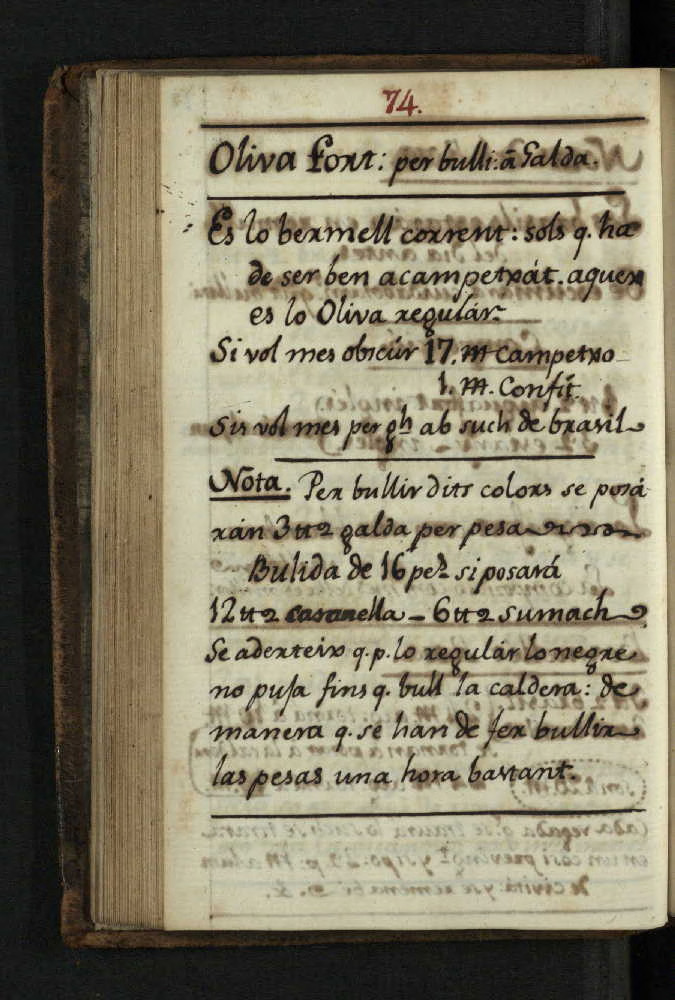 74.
Oliva Font: per bulli: ā Galda.
Es lo bermell corrent: sols q. ha
de ser ben acampetxát. aquex
es lo Oliva regulár.
Si vol mes obscúr 17. m campetxo
1. m. Confit.
Sis vol mes per gh ab such de brasil
Nota. Per bullir dits colors se posá
rán 3 ttz galda per pesa
Bulida de 16 pez. si posará
12 ttz casanella - 6 ttz sumach
Se aderteix q. p. lo regulár lo negre
no puja fins q. bull la caldera: de
manera q. se han de fer bullir
las pesas una hora bastant.